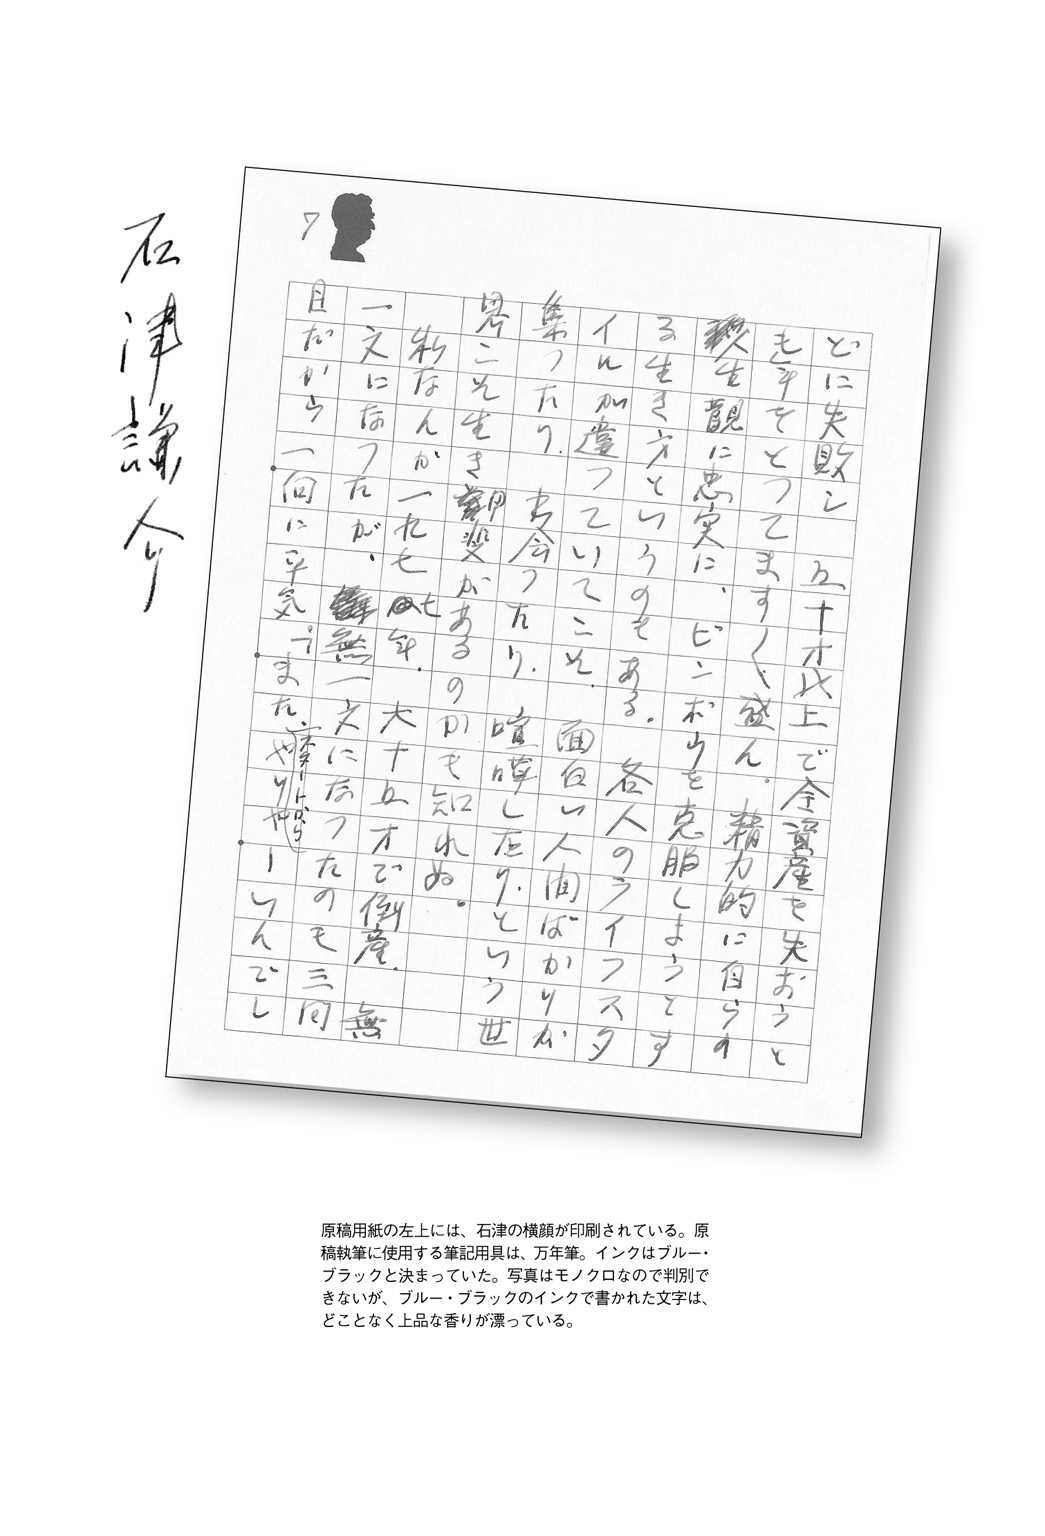 石津謙介
7
どに失敗し 五十才以上で全資産を失おうと
も年をとってますく盛ん。精力的に自らの
人生観に忠実に、ビンボウを克服しようとす
る生き方というのもある。 各人のライフスタ
イルが違っていてこそ、 面白い人間ばかりが
集ったり、 出会ったり、 喧嘩したり、という世
界こそ生き甲斐があるのかも知れぬ。
私なんが一九七七年、 六十五才で倒産、 無
一文になったが、無一文になったのモ三回
目だから一向に平気 また、(ゼロスタートから)やりやーいんでし
原稿用紙の左上には、石津の横顔が印刷されている。原
稿執筆に使用する筆記用具は、万年筆。インクはブルー・
ブラックと決まっていた。写真はモノクロなので判別で
きないが、ブルー・ブラックのインクで書かれた文字は、
どことなく上品な香りが漂っている。